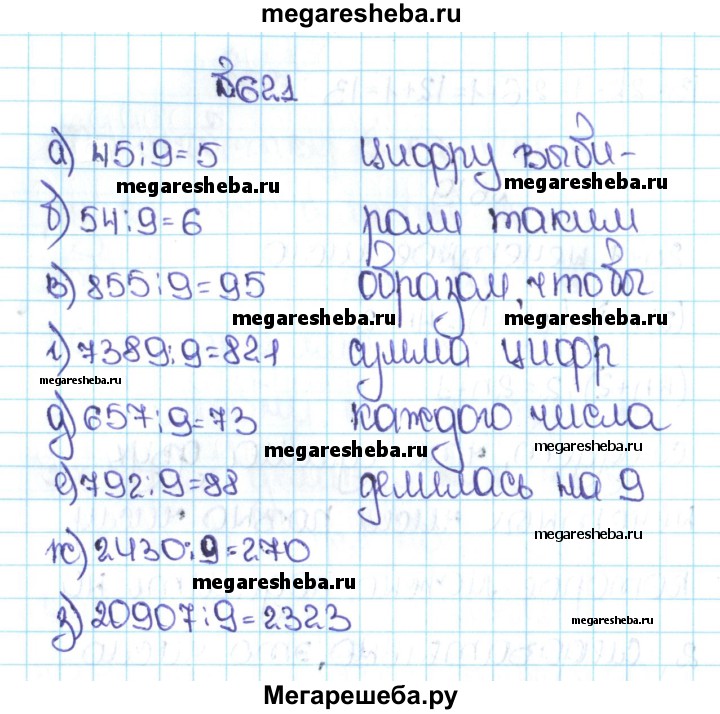 megaresheba.ru
№621
а) 45:9=5 цифру выби-
megaresheba.ru megaresheba.ru
б) 54:9=6 рали таким
в) 855:9=95 образом, чтобы
megaresheba.ru megaresheba.ru
г) 7389:9=821 сумма цифр
megaresheba.ru
д) 657:9=73 каждого числа
megaresheba.ru megaresheba.ru
е) 792:9=88 делилась на 9
megaresheba.ru
ж) 2430:9=270
megaresheba.ru
з) 20907:9=2323
megaresheba.ru
Мегарешеба.ру